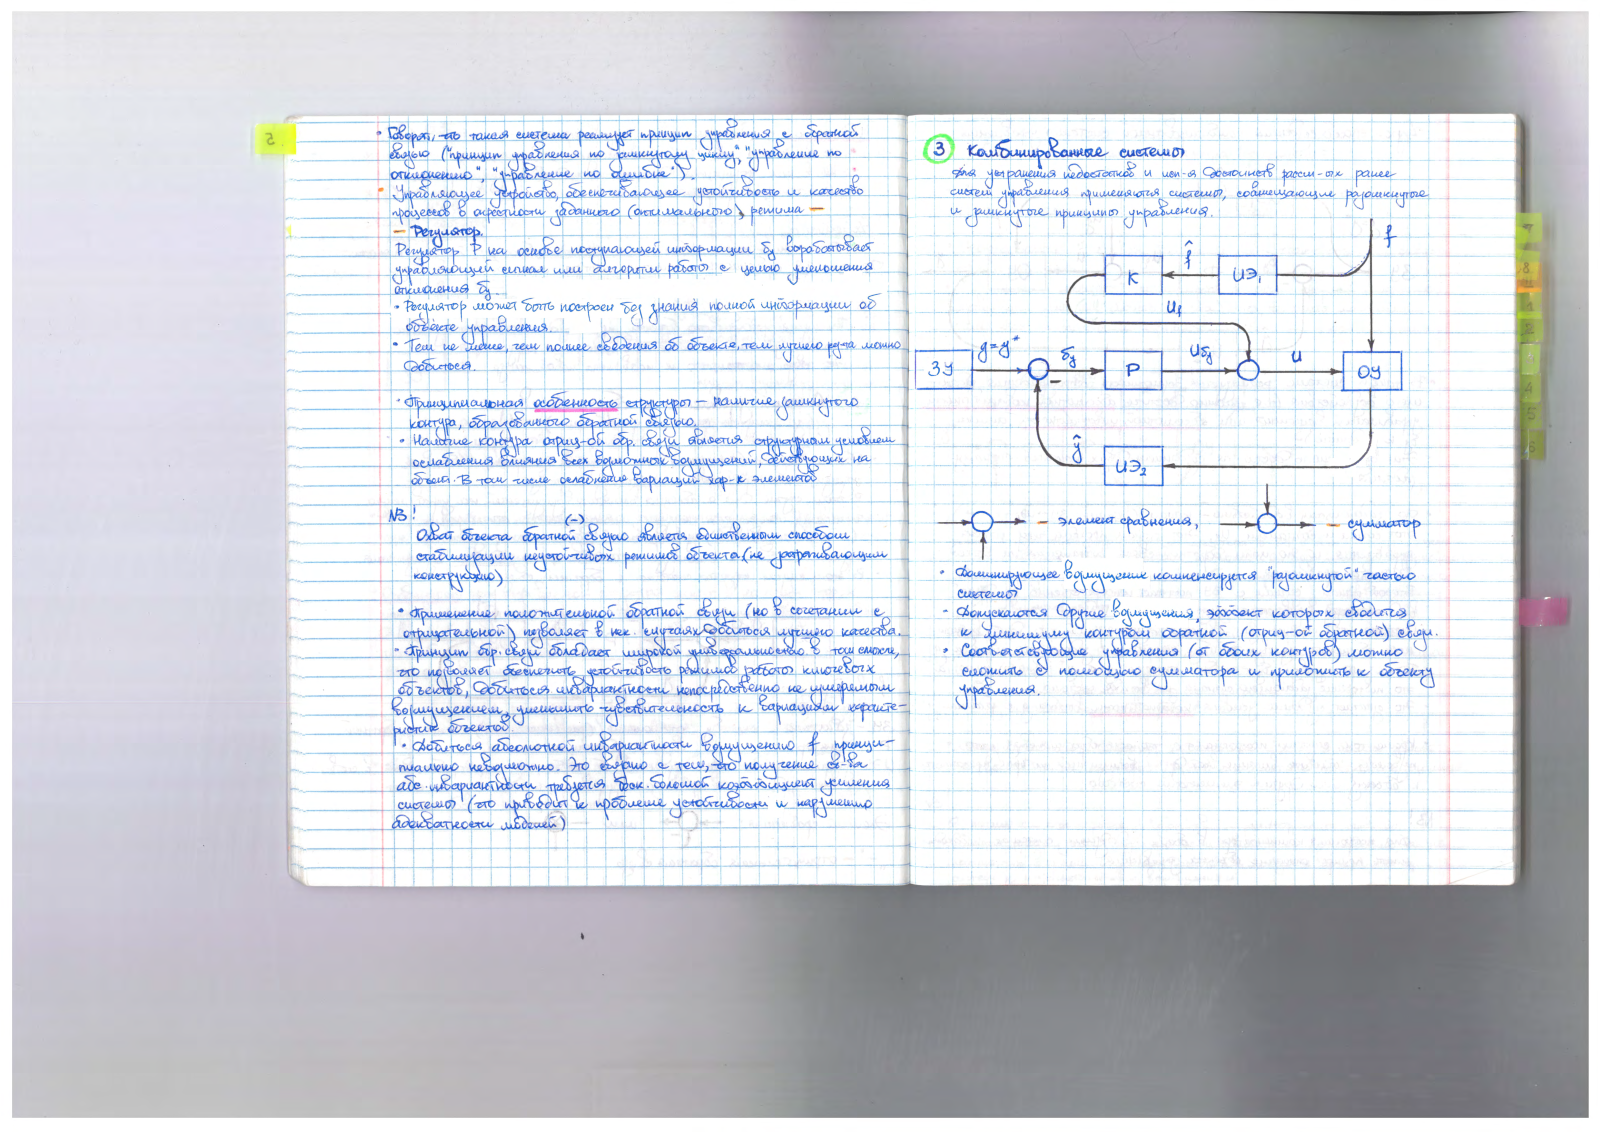 5.
• Говорят, что такая система реализует принцип управления с обратной
связью ("принцип управления по замкнутому циклу", "управление по
отклонению", "управление по ошибке").
Управляющее устройство, обеспечивающее устойчивость и качество
процессов в окрестности заданного (оптимального) режима —
— Регулятор.
Регулятор Р на основе поступающей информации δy вырабатывает
управляющий сигнал или алгоритм работы с целью уменьшения
отклонения δy.
• Регулятор может быть построен без знания полной информации об
объекте управления.
• Тем не менее, чем полнее сведения об объекте, тем лучшего рез-та можно
добиться.
• Принципиальная особенность структуры — наличие замкнутого
контура, образованного обратной связью.
• Наличие контура отриц-ой обр. связи является структурным условием
ослабления влияния всех возможных возмущений, действующих на
объект. В том числе ослабление вариаций хар-к элементов
NB!
(-)
Охват объекта обратной связью является единственным способом
стабилизации неустойчивых режимов объекта (не затрагивающим
конструкцию)
• Применение положительной обратной связи (но в сочетании с
отрицательной) позволяет в нек. случаях добиться лучшего качества.
• Принцип обр. связи обладает широкой универсальностью в том смысле,
что позволяет обеспечить устойчивость режимов работы ключевых
объектов, добиться инвариантности непосредственно не измеримым
возмущением, уменьшить чувствительность к вариациям характе-
ристик объектов.
• Добиться абсолютной инвариантности возмущению f принци-
пиально невозможно. Это связано с тем, что получение св-ва
абс. инвариантности требуется беск. большой коэффициент усиления
системы (что приводит к проблеме устойчивости и нарушению
адекватности моделей)
3 Комбинированные системы
Для устранения недостатков и исп-я достоинств рассм-ых ранее
систем управления применяются системы, совмещающие разомкнутые
и замкнутые принципы управления.
f
К
f̂
ИЭ₁
U_f
ЗУ
y=y*
δy
Р
U_δy
U
ОУ
−
ŷ
ИЭ₂
— элемент сравнения,
— сумматор
• Доминирующее возмущение компенсируется "разомкнутой" частью
системы
- Допускаются другие возмущения, эффект которых сводится
к минимуму контуром обратной (отриц-ой обратной) связи.
• Соответствующие управления (от обоих контуров) можно
сложить с помощью сумматора и приложить к объекту
управления.